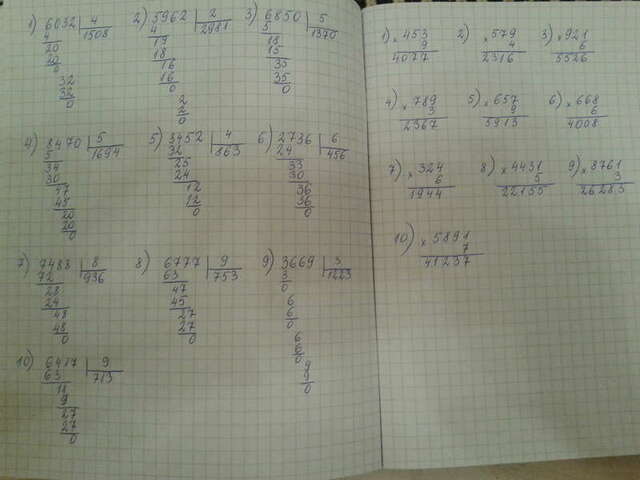 1) 6032 | 4
4 | 1508
20
20
0
32
32
0
2) 5962 | 2
4 | 2981
19
18
16
16
0
2
2
0
3) 6850 | 5
5 | 1370
18
15
35
35
0
4) 8470 | 5
5 | 1694
34
30
47
45
20
20
0
5) 3452 | 4
32 | 863
25
24
12
12
0
6) 2736 | 6
24 | 456
33
30
36
36
0
7) 7488 | 8
72 | 936
28
24
48
48
0
8) 6777 | 9
63 | 753
47
45
27
27
0
9) 3669 | 3
3 | 1223
0
6
6
0
6
6
0
9
9
0
10) 6417 | 9
63 | 713
11
9
27
27
0
1) × 453
9
4077
2) × 579
4
2316
3) × 921
6
5526
4) × 789
3
2367
5) × 657
9
5913
6) × 668
6
4008
7) × 324
6
1944
8) × 4431
5
22155
9) × 8761
3
26283
10) × 5891
7
41237